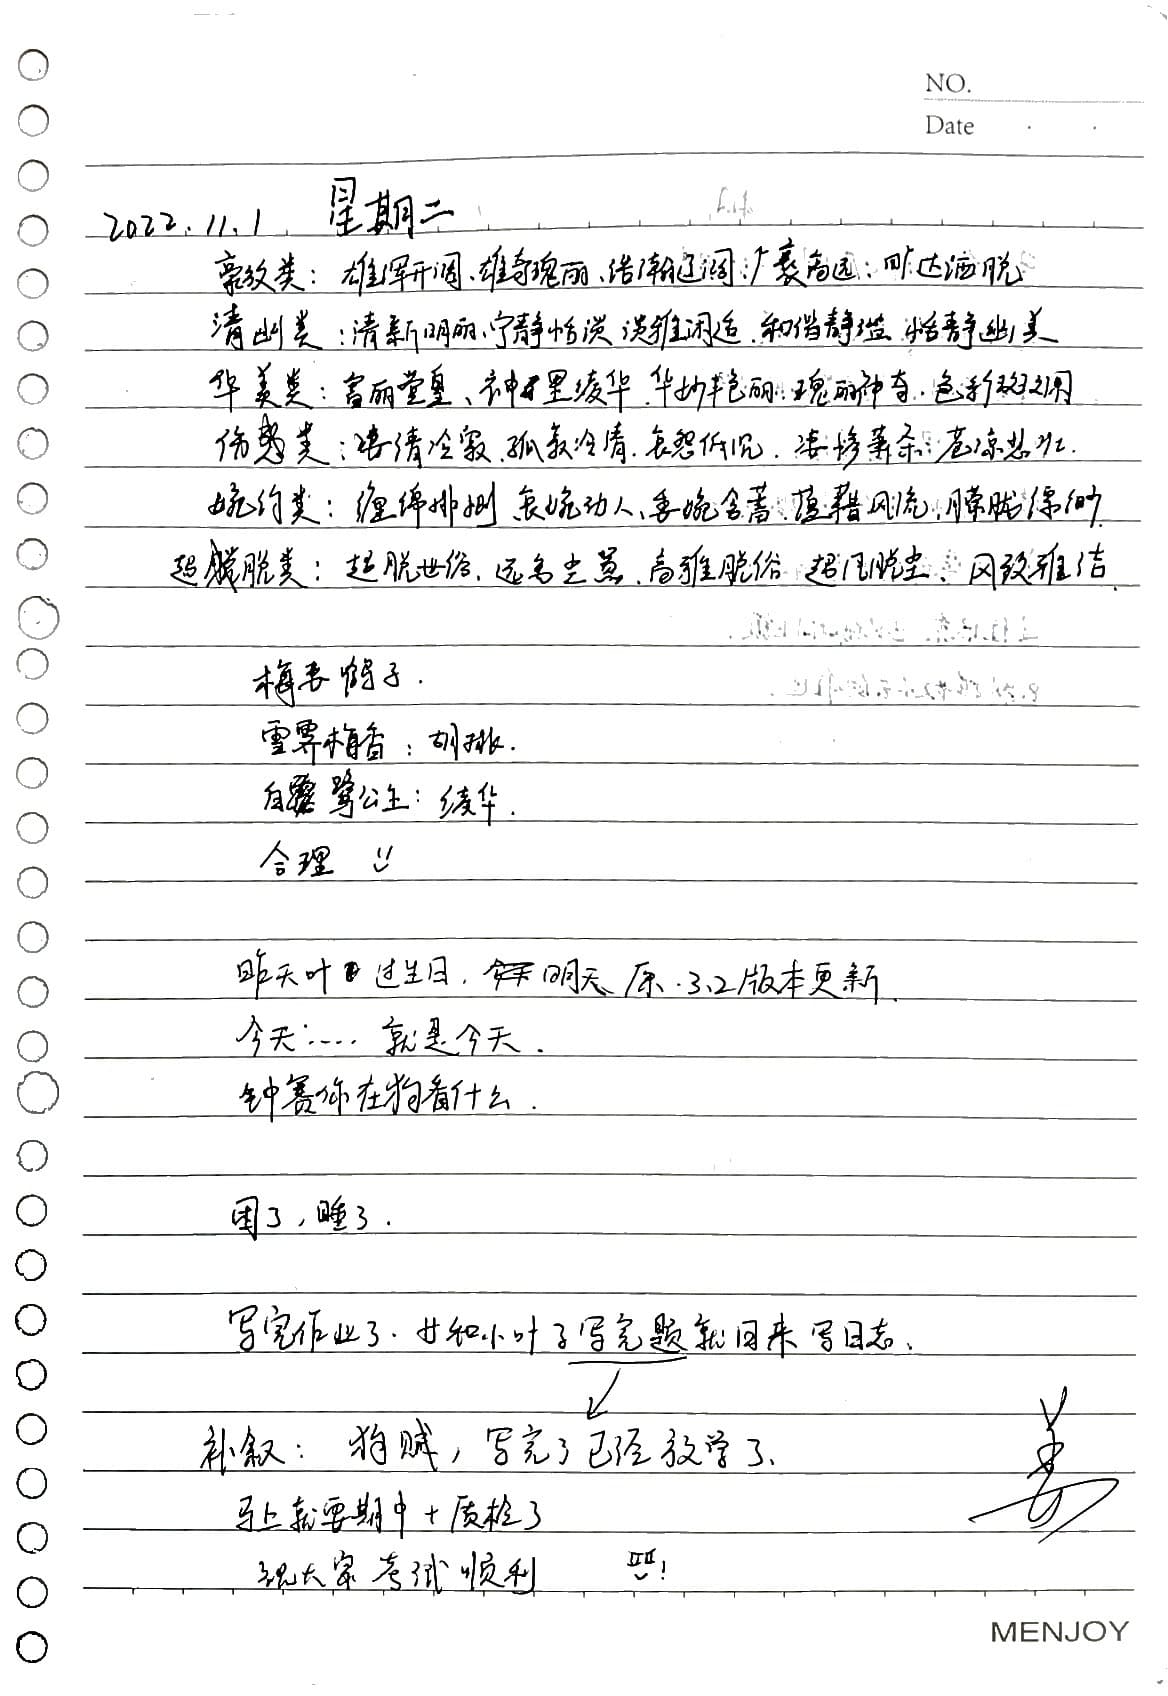 NO.
Date
2022.11.1 星期二
豪放类：雄浑开阔、雄奇瑰丽、浩瀚辽阔、广袤高远；旷达洒脱
清幽类：清新明丽、宁静恬淡 淡雅闲适、和谐静谧、恬静幽美
华美类：富丽堂皇、神里绫华、华妙艳丽、瑰丽神奇、色彩斑斓
伤感类：凄清冷寂、孤寂冷清、哀怨低沉、凄惨萧杀、苍凉悲壮.
婉约类：缠绵悱恻 哀婉动人、委婉含蓄、蕴藉风流、朦胧缥缈
超脱类：超脱世俗、远离尘嚣、高雅脱俗 超凡脱尘、风致雅洁.
梅妻鹤子.
雪霁梅香：胡桃.
白鹭公主：绫华.
合理
昨天叶 过生日, 明天原·3.2版本更新.
今天:.... 就是今天.
钟赛你在狗看什么.
困了,睡了.
写完作业了. 和小叶子写完题就回来写日志.
补叙：狗贼, 写完了已经放学了.
马上就要期中+质检了
祝大家考试顺利 !
MENJOY